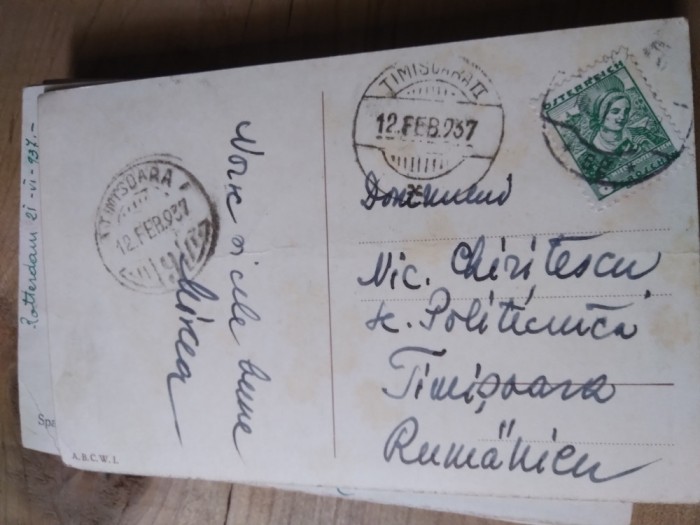 TIMISOARA II
12.FEB.937
ÖSTERREICH
TIMISOARA
12.FEB.937
Noroc și cele bune
Mircea
Domnului
Nic. Chirițescu
Șc. Politecnică
Timișoara
Rumänien
A.B.C.W.I.
Rotterdam 21-VI-937.-
Spa